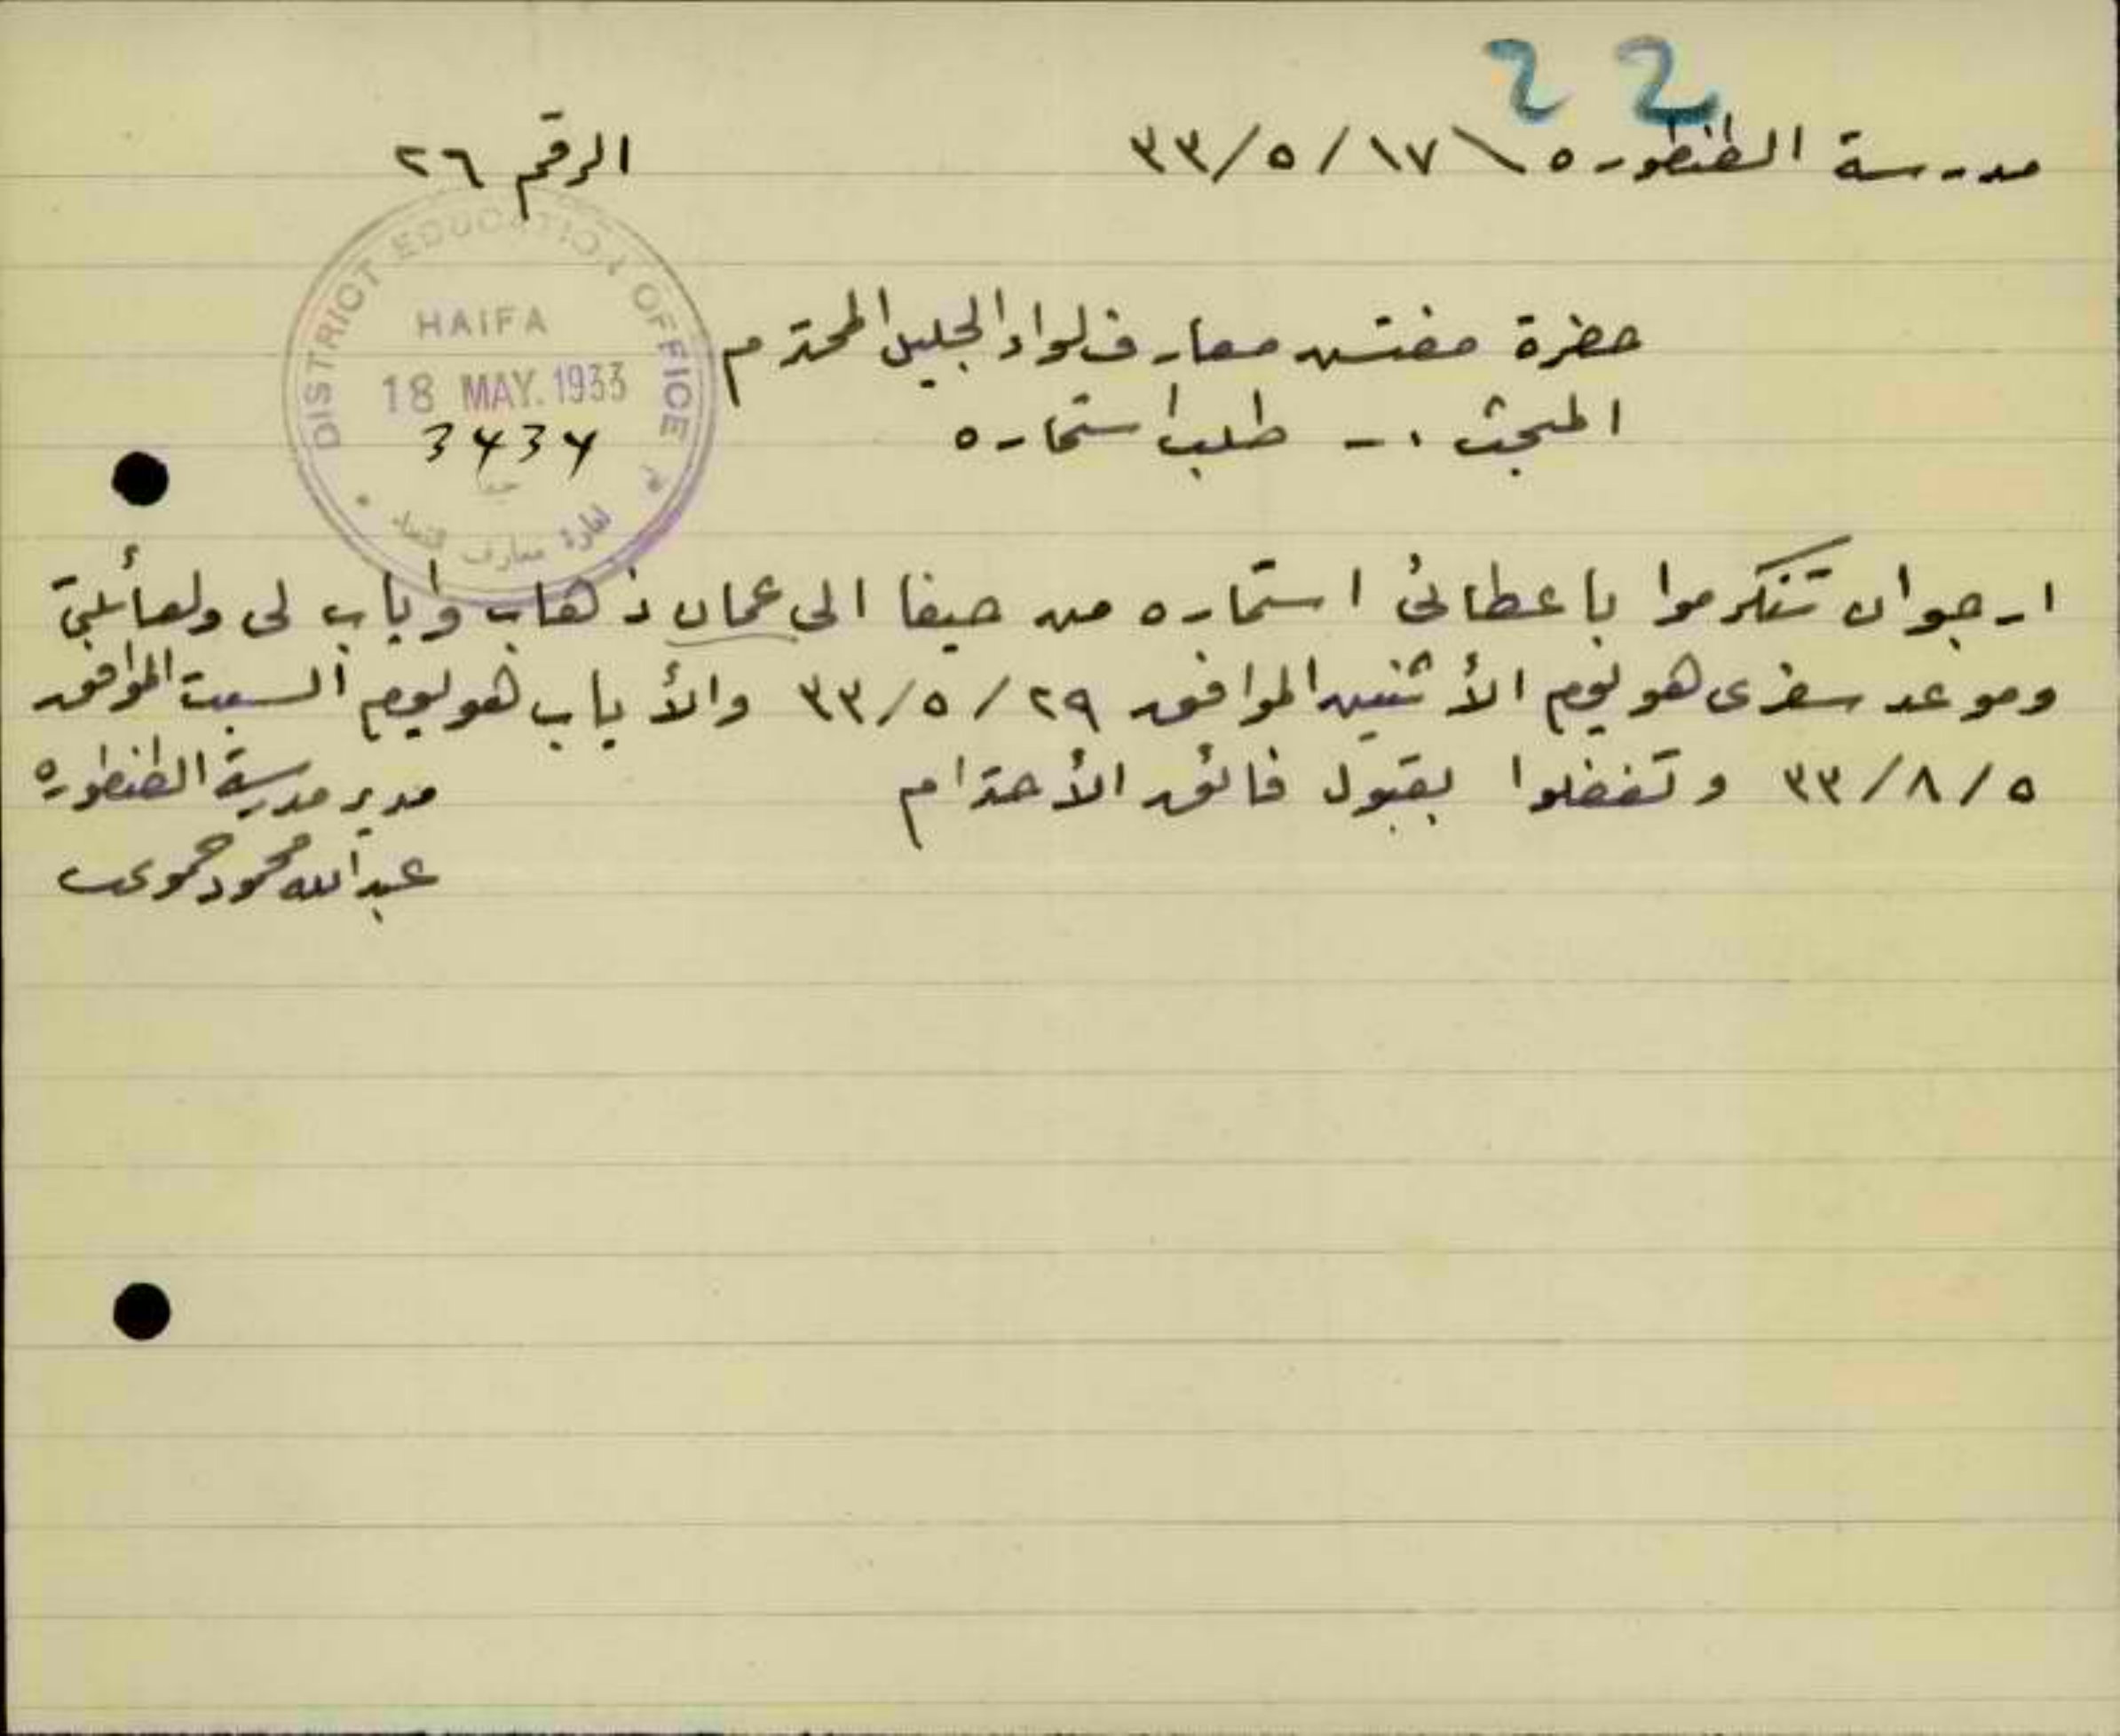 22
مدرسة الطنطوره \ ١٧ / ٥ / ٣٣
الرقم ٢٦
DISTRICT EDUCATION OFFICE
HAIFA
18 MAY. 1933
3434
حيفا
ادارة معارف
حضرة مفتش معارف لواء الجليل المحترم
المبحث .- طلب استماره
ارجو ان تتكرموا باعطائي استماره من حيفا الى عمان ذهاب واياب لى ولعائلتي
وموعد سفرى هو يوم الأثنين الموافق ٢٩ / ٥ / ٣٣ والأياب هو يوم السبت الموافق
٥ / ٨ / ٣٣ وتفضلوا بقبول فائق الأحترام
مدير مدرسة الطنطوره
عبدالله محمود